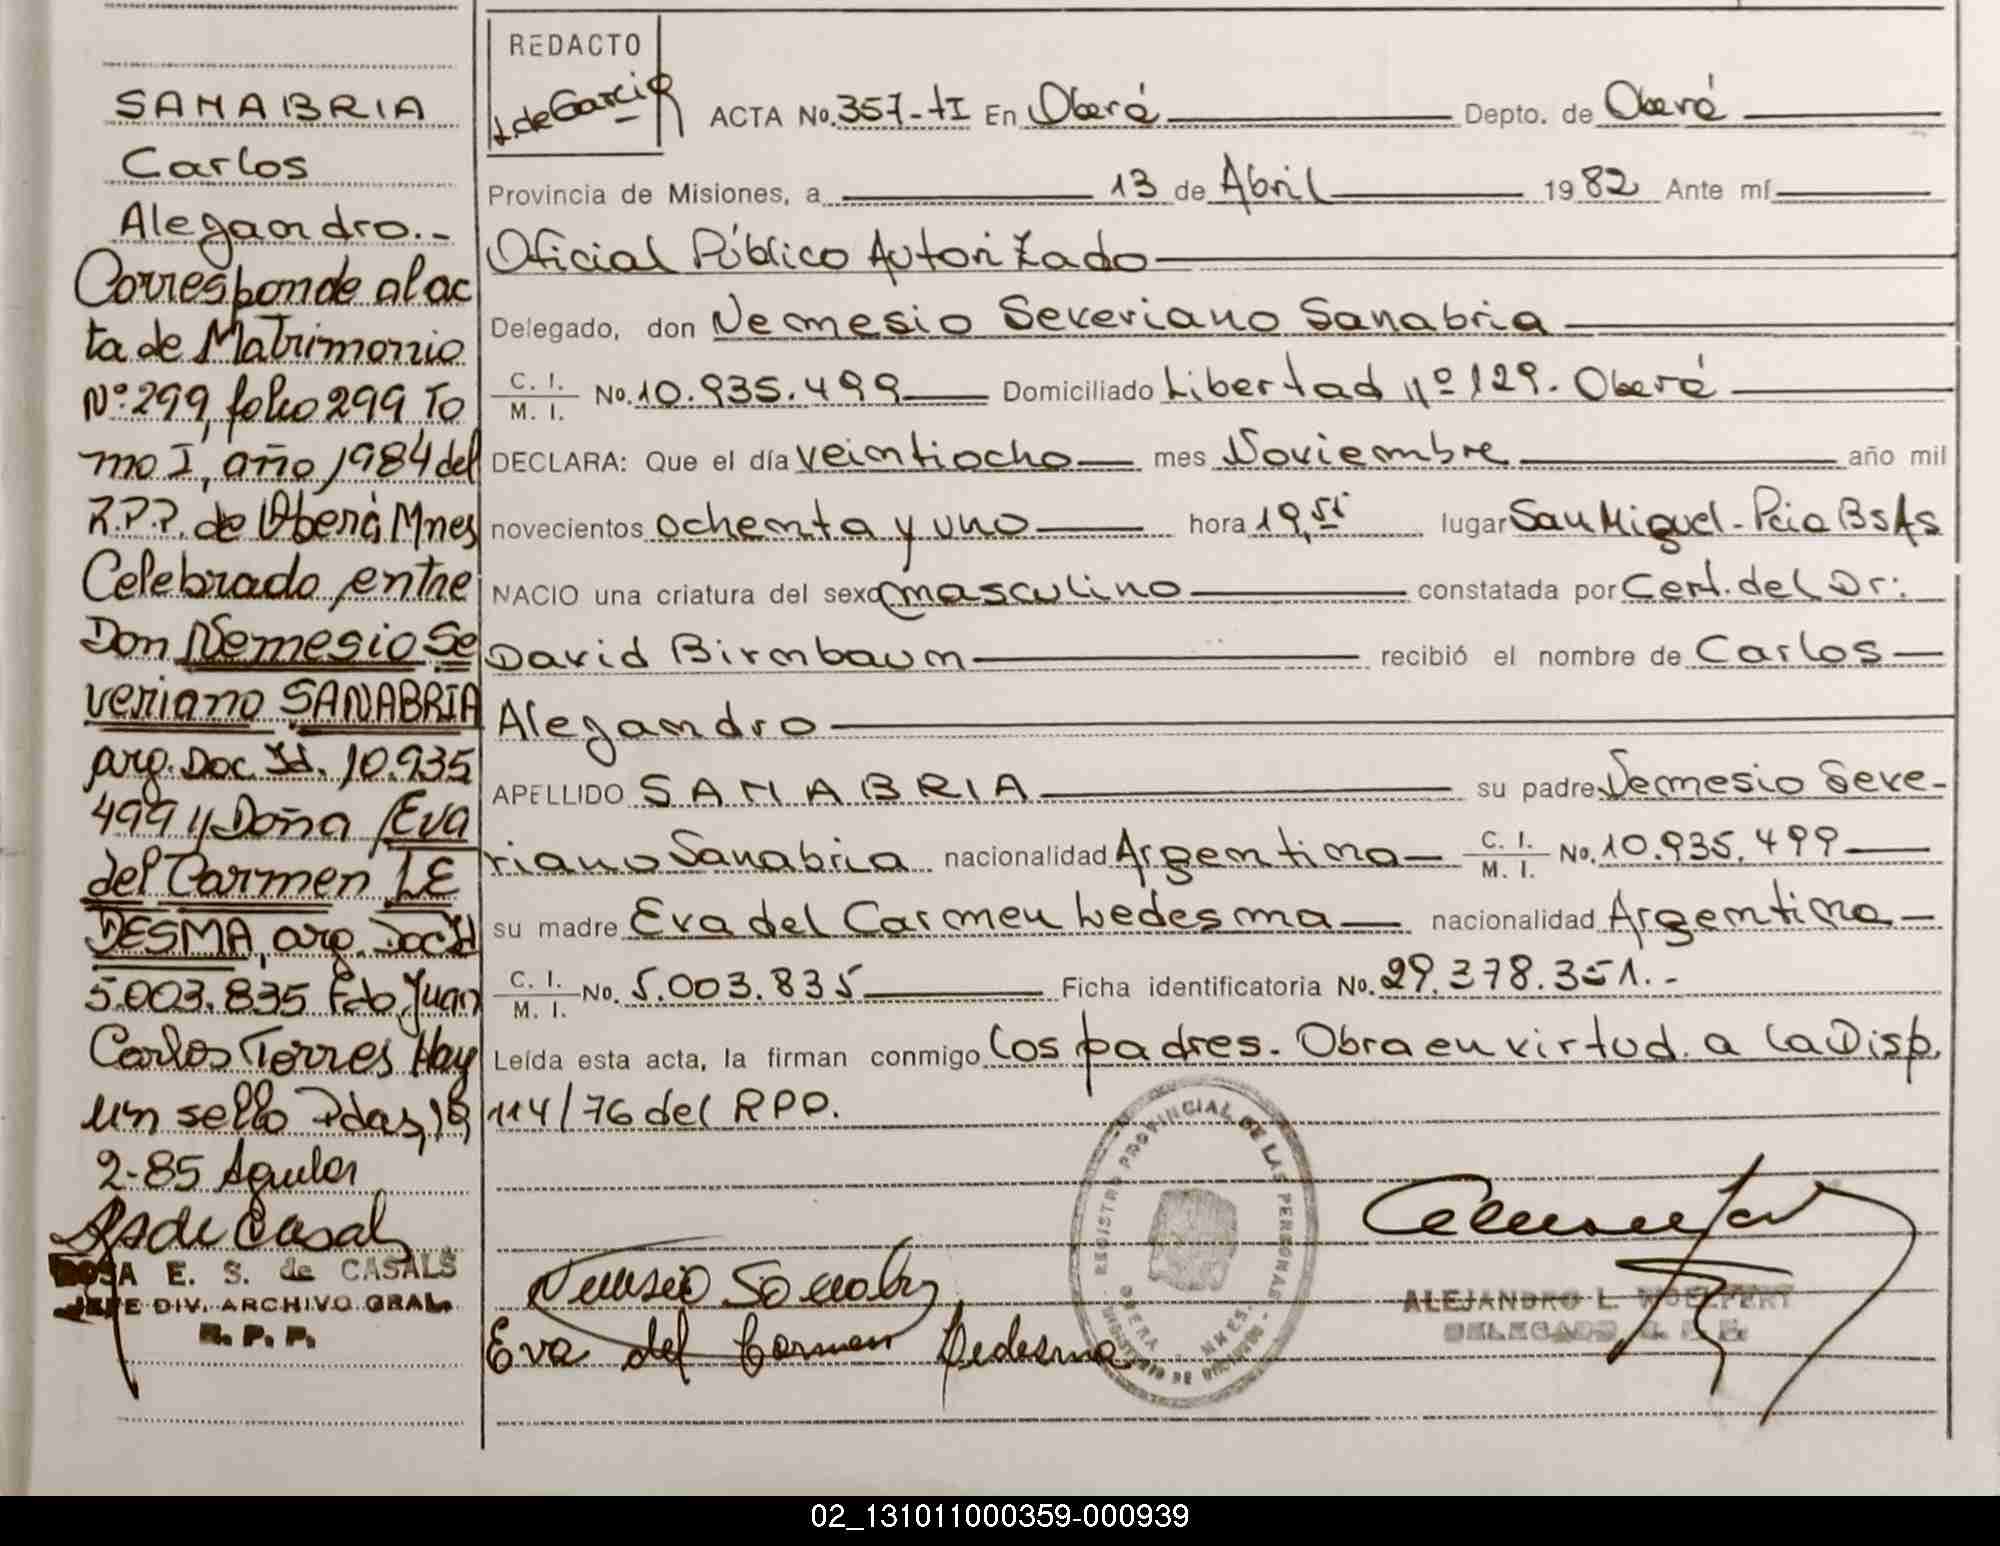 SANABRIA
Carlos
Alejandro.-
Corresponde al ac
ta de Matrimonio
Nº 299, folio 299 To
mo I, año 1984 del
R.P.P. de Oberá Mnes
Celebrado entre
Don Nemesio Se
veriano SANABRIA
arg. Doc. Id. 10.935
499 y Doña Eva
del Carmen LE
DESMA, arg. Doc Id
5.003.835 Fdo. Juan
Carlos Torres Hay
un sello Pdas,
2-85 Aguilar
de Casals
ROSA E. S. de CASALS
JEFE DIV. ARCHIVO GRAL.
R. P. P.
REDACTO
de Garcia
ACTA No. 357-tI En Oberá Depto. de Oberá
Provincia de Misiones, a 13 de Abril 1982 Ante mí
Oficial Público Autorizado
Delegado, don Nemesio Severiano Sanabria
C. I. / M. I. No. 10.935.499 Domiciliado Libertad nº 129. Oberá
DECLARA: Que el día veintiocho mes Noviembre año mil
novecientos ochenta y uno hora 19, lugar San Miguel - Pcia Bs As
NACIO una criatura del sexo masculino constatada por Cert. del Dr:
David Birnbaum recibió el nombre de Carlos
Alejandro
APELLIDO SANABRIA su padre Nemesio Seve-
riano Sanabria nacionalidad Argentina C. I. / M. I. No. 10.935.499
su madre Eva del Carmen Ledesma nacionalidad Argentina
C. I. / M. I. No. 5.003.835 Ficha identificatoria No. 29.378.351.-
Leída esta acta, la firman conmigo los padres. Obra en virtud a la Disp.
114/76 del RPP.
REGISTRO PROVINCIAL DE LAS PERSONAS
OBERA - MNES.
Nemesio Sanabria
Eva del Carmen Ledesma
ALEJANDRO L. WOELFERT
DELEGADO R. P. P.
02_131011000359-000939